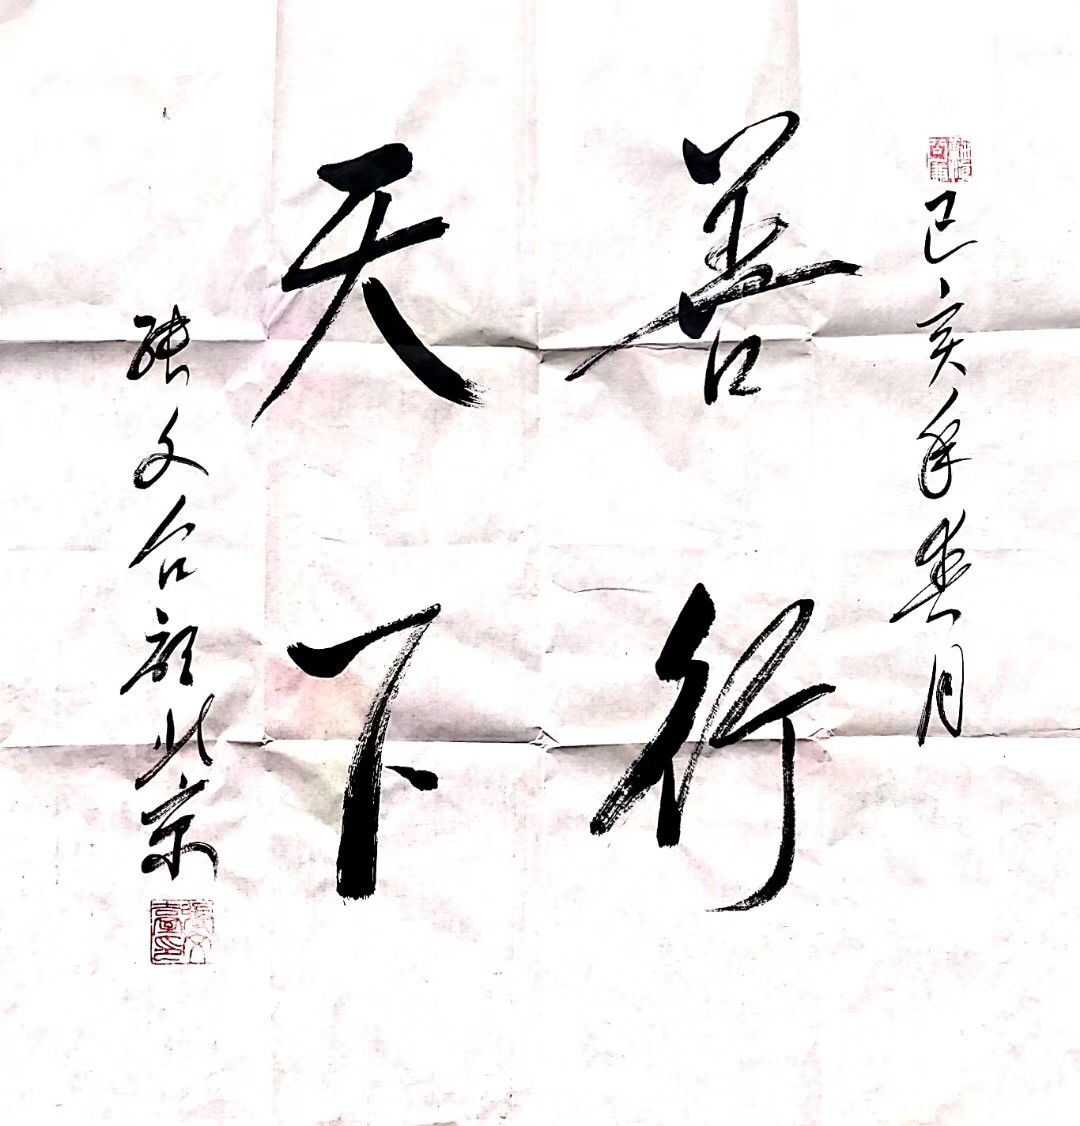 己亥年春月
善行
天下
张文台题北京